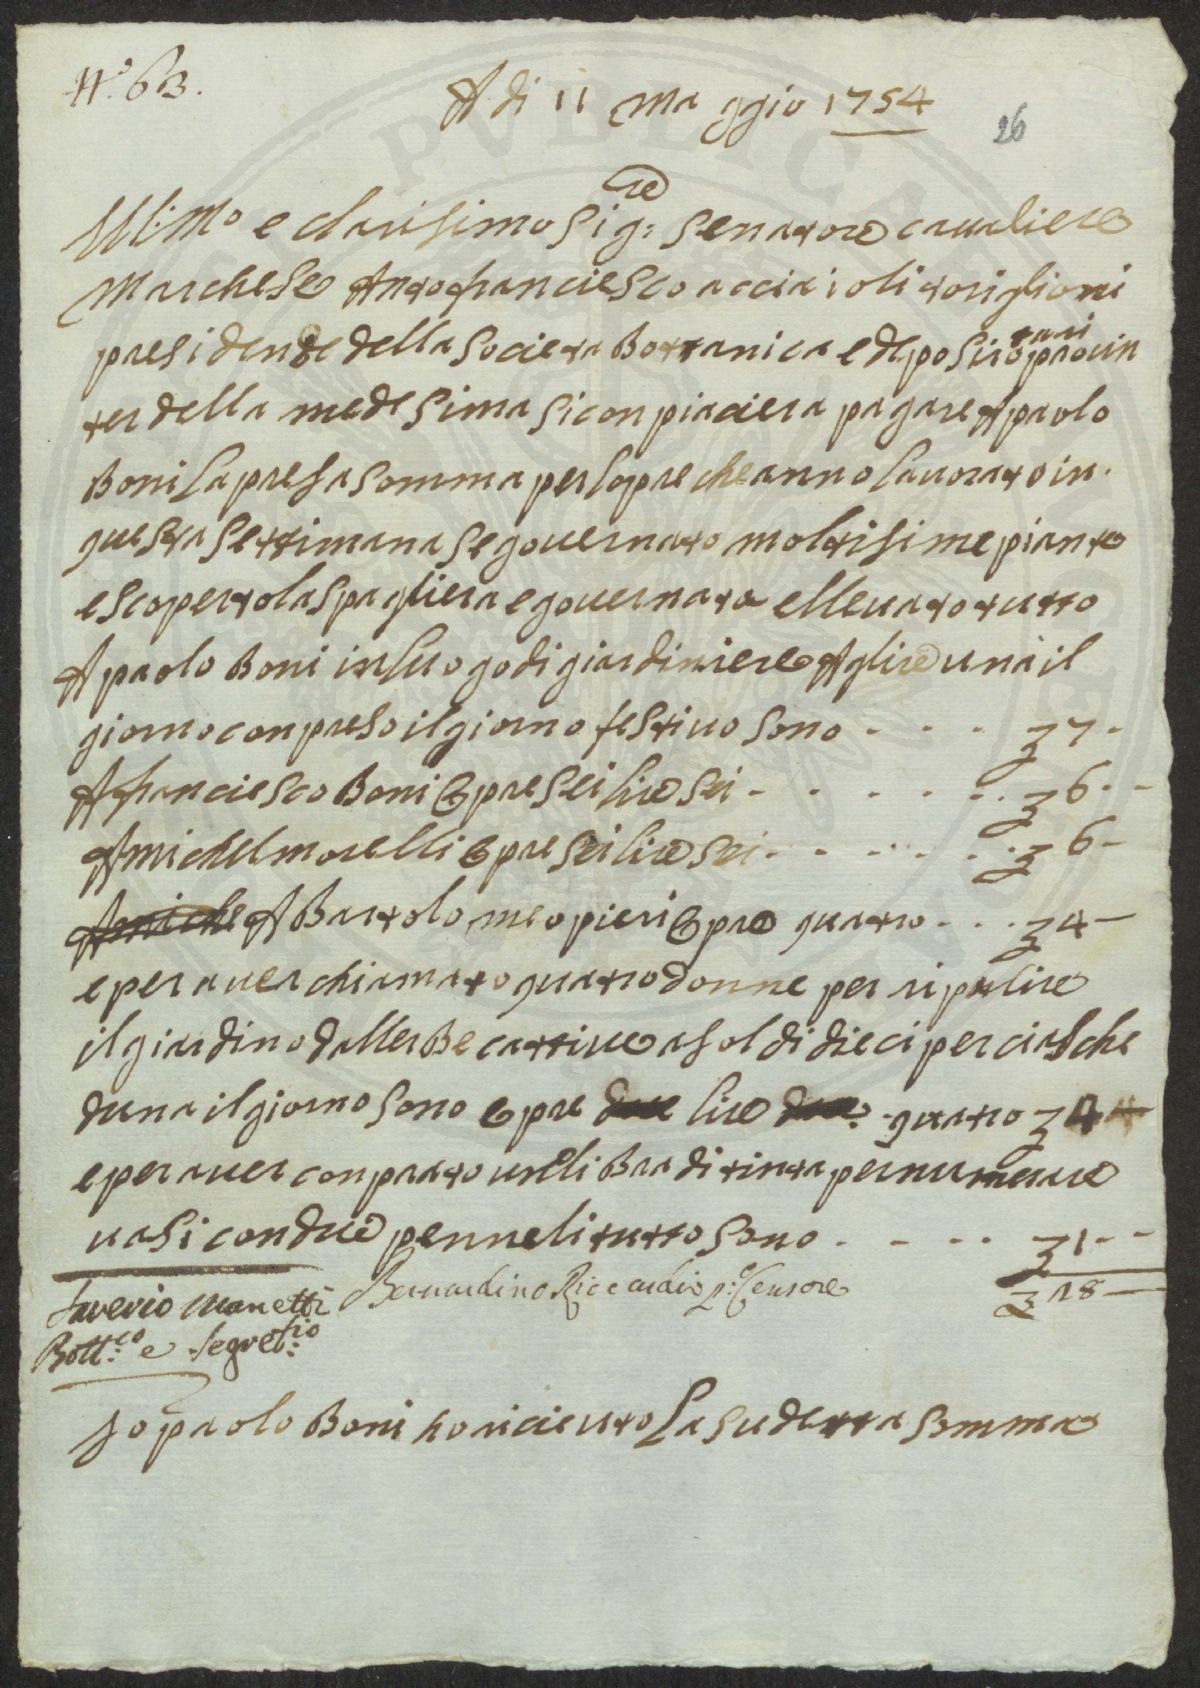 N.° 63.
A di 11 Ma ggio 1754
26
Ill:Mo e clarisimo Sig:re Senatore cavaliere
Marchese Antofranciesco acciaioli toriglioni
presidente della Societa Bottanica e depositario pro in
ter della medesima si conpiaciera pagare A paolo
Boni la presa somma per lopre che anno lavorato in
questa settimana se governato moltisime piante
e scoperto la spagliera e governata ellevato tutto
A paolo Boni in luogo di giardiniere A lire una il
giorno conpreso il giorno festivo sono - - - - 7 -
A franciesco Boni opre sei lire sei - - - - - - 6 - -
A michel morelli opre sei lire sei - - - - - - 6 -
A miche A Bartolomeo pieri opre quatro - - - 4 -
e per aver chiamato quatro donne per ripulire
il giardino dallerbe cattive a soldi dieci per ciasche
duna il giorno sono opre due lire due quatro 4
e per aver conprato una libra di tinta per numerare
vasi con due penneli tutto sono - - - - 1 - -
Saverio Manetti Bernardino Riccardi p:o Censore 18 -
Bott:co e Segret:rio
Io paolo Boni ho ricieuto la sudetta somma